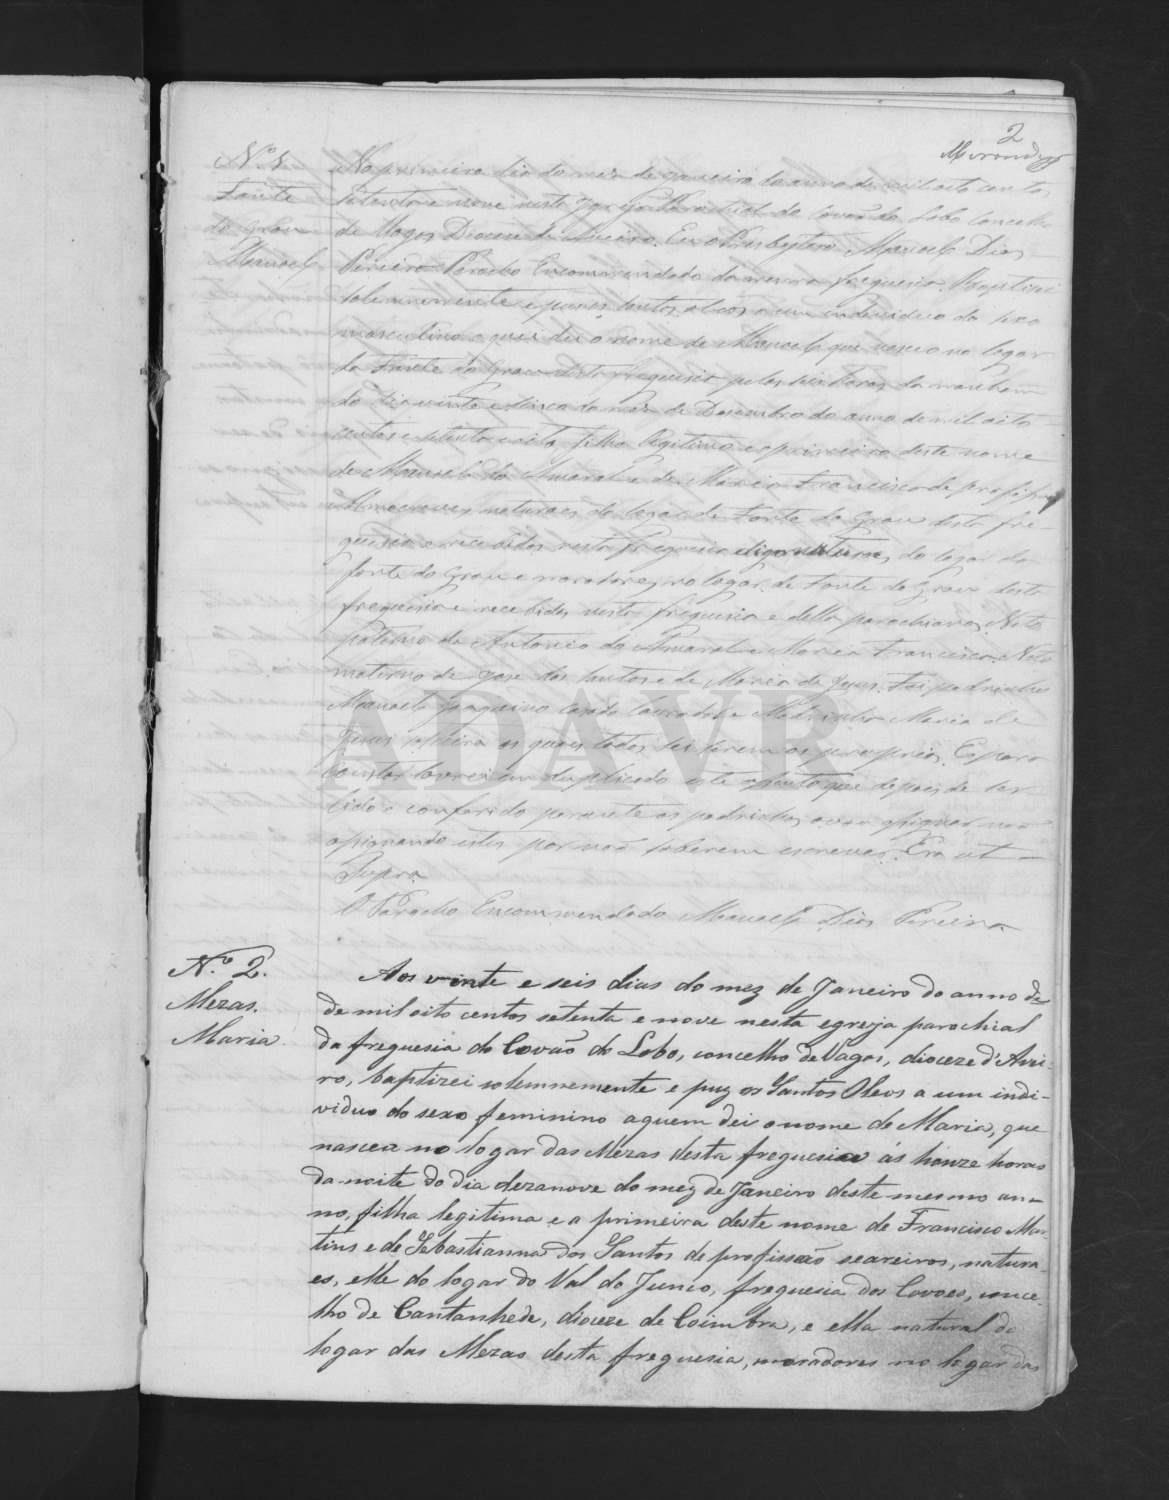 2
N.º 1.
Fonte
do Grou
Manoel
No primeiro dia do mez de Janeiro do anno de mil oito centos
setenta e nove nesta Igreja Parochial do Covão do Lobo Concelho
de Vagos Diocese de Aveiro, Eu o Presbytero Manoel Dias
Pereira Parocho Encommendado da mesma freguesia, Baptizei
solemnemente e puz os santos oleos a um individuo do sexo
masculino a quem dei o nome de Manoel que nasceo no logar
da Fonte do Grou desta freguesia pelas horas da manhan
do dia vinte e cinco do mez de Dezembro do anno de mil oito
centos e setenta e oito filho legitimo e primeiro deste nome
de Manoel do Amaral e de Maria Francisca de profissão
Almocreves naturaes do logar de Fonte do Grou desta fre-
guesia e recebidos nesta freguesia digo naturaes do logar da
fonte do Grou e moradores no logar de Fonte do Grou desta
freguesia e recebidos nesta freguesia e della parochianos, Neto
paterno de Antonio do Amaral e Maria Francisca, Neto
materno de Jose dos Santos e de Maria de Jesus, Foi padrinho
Manoel Joaquim casado lavrador e Madrinha Maria de
Jesus solteira os quaes todos sei serem os proprios. E para
constar lavrei em duplicado este assento que depois de ser
lido e conferido perante os padrinhos o vou assignar não
assignando estes por não saberem escrever. Era ut
Supra
O Parocho Encommendado Manoel Dias Pereira
N.º 2.
Mezas.
Maria.
Aos vinte e seis dias do mez de Janeiro do anno de
de mil oito centos setenta e nove nesta egreja parochial
da freguesia do Covão do Lobo, concelho de Vagos, dioceze d'Avei-
ro, baptizei solemnemente e puz os Santos Oleos a um indi-
viduo do sexo feminino a quem dei o nome de Maria, que
nasceu no logar das Mezas desta freguesia ás honze horas
da noite do dia dezanove do mez de Janeiro deste mesmo an-
no, filha legitima e a primeira deste nome de Francisco Mar-
tins e de Sebastianna dos Santos de profissão seareiros, natura-
es, elle do logar do Val do Junco, freguesia dos Covoes, conce-
lho de Cantanhede, dioceze de Coimbra, e ella natural do
logar das Mezas desta freguesia, moradores no logar das
ADAVR